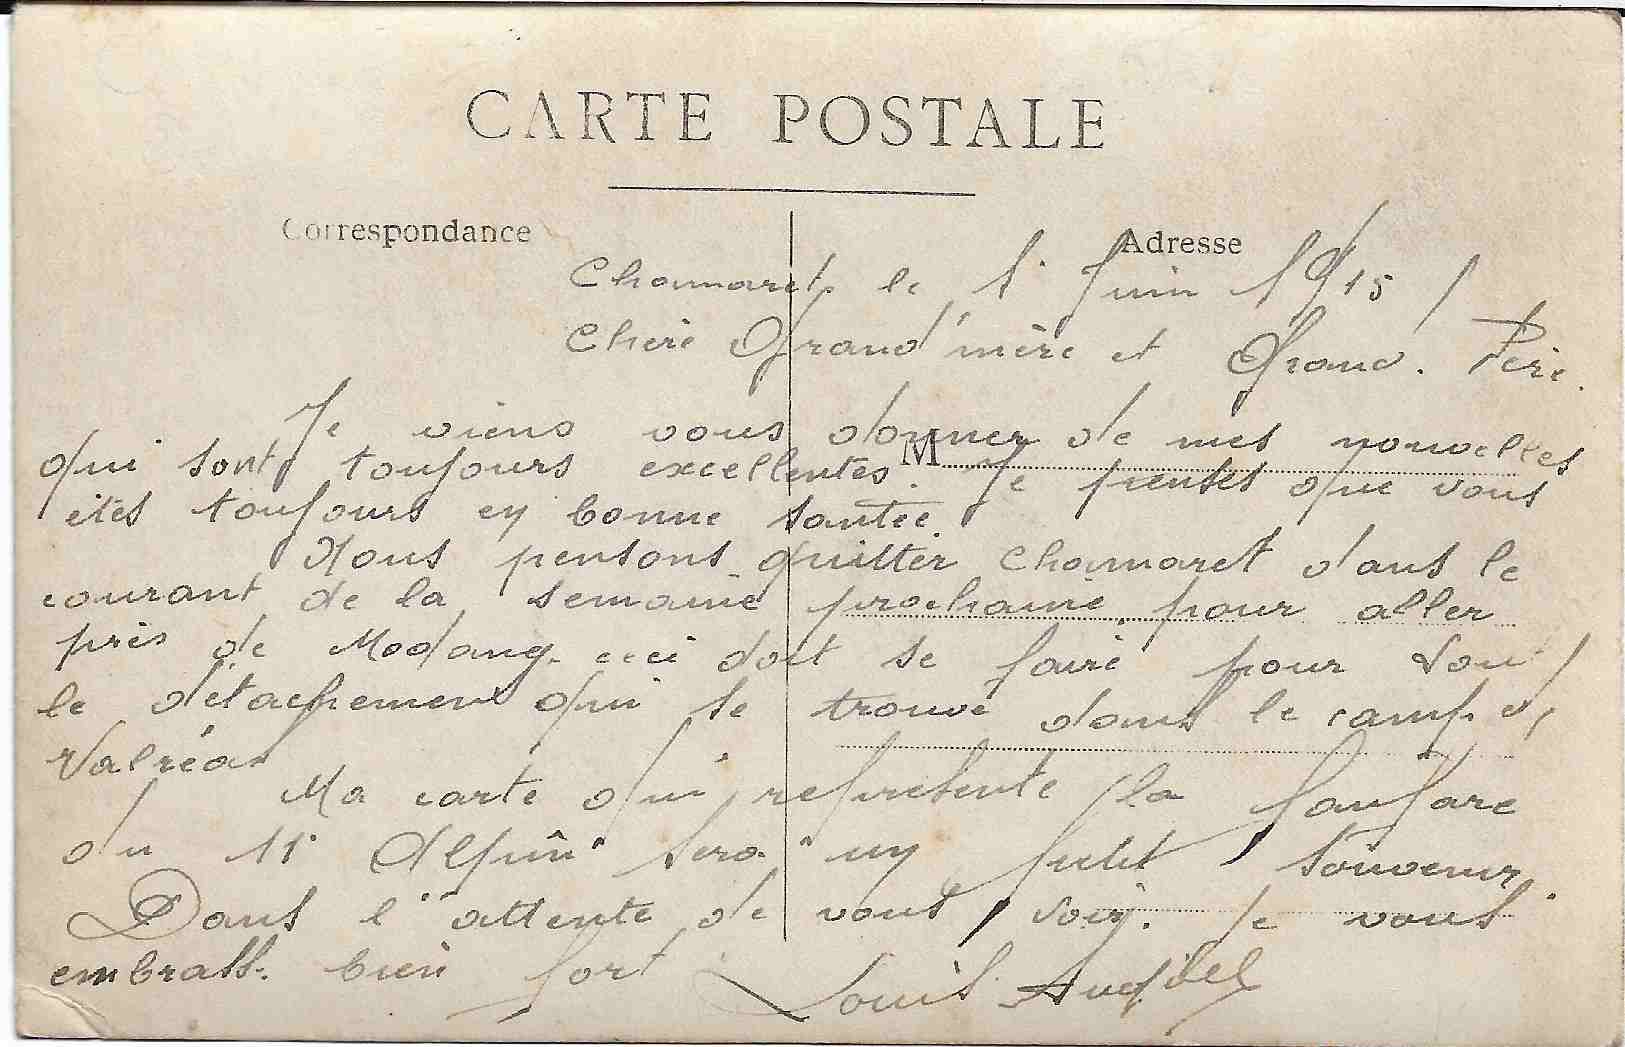 CARTE POSTALE
Correspondance
Adresse
Chamaret le 1 Juin 1915
Chère Grand'mère et Grand. Père.
Je viens vous donner de mes nouvelles
qui sont toujours excellentes. Je penses que vous
M
êtes toujours en bonne santée
Nous pensons quitter Chamaret dans le
courant de la semaine prochaine pour aller
près de Modang. ceci doit se faire pour tout
le détachement qui se trouve dans le camp d
Valréas
Ma carte qui représente la fanfare
du 11 Alpin sera un petit souvenir.
Dans l'attente de vous voir. Je vous
embrass. bien fort
Louis